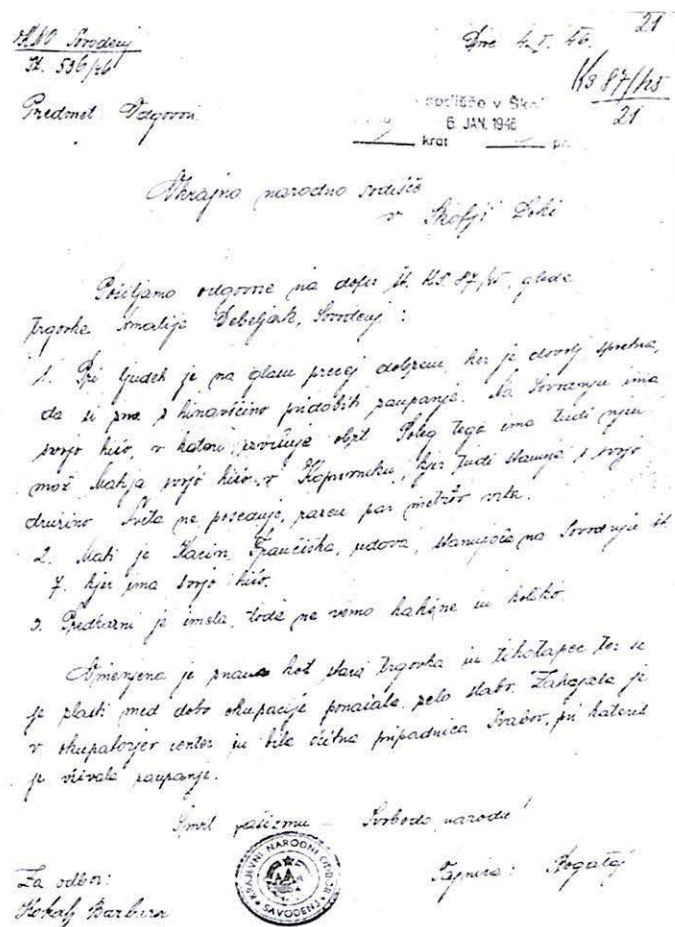 KNO Sovodenj
Št. 536/46
Predmet: Odgovori
Dne 4. I. 46.
21
Ks 87/45
21
sodišče v Škof
6. JAN. 1946
krat pr
Okrajno narodno sodišče
v Škofji Loki
Pošiljamo odgovore na dopis št. KS. 87/45, glede
trgovke Amalije Debeljak, Sovodenj :
1. Pri ljudeh je na glasu precej dobrem, ker je dovolj spretna,
da si zna s hinavščino pridobiti zaupanje. Na Sovodnju ima
svojo hišo, v kateri izvršuje obrt. Poleg tega ima tudi njen
mož Matija svojo hišo v Koprivniku, kjer tudi stanuje s svojo
družino. Sveta ne poseduje, razen par metrov vrta.
2. Mati je Kacin Frančiška, vdova, stanujoča na Sovodnju št.
7. kjer ima svojo hišo.
3. Predkazni je imela, toda ne vemo kakšne in koliko.
Omenjena je znana kot stara trgovka in tihotapec ter se
je zlasti med dobo okupacije ponašala zelo slabo. Zahajala je
v okupatorjev center in bila očitna pripadnica Švabov, pri katerih
je uživala zaupanje.
Smrt fašizmu – Svobodo narodu!
Za odbor:
Kokalj Barbara
KRAJEVNI NARODNI ODBOR
SAVODENJ
Tajnica: Bogataj